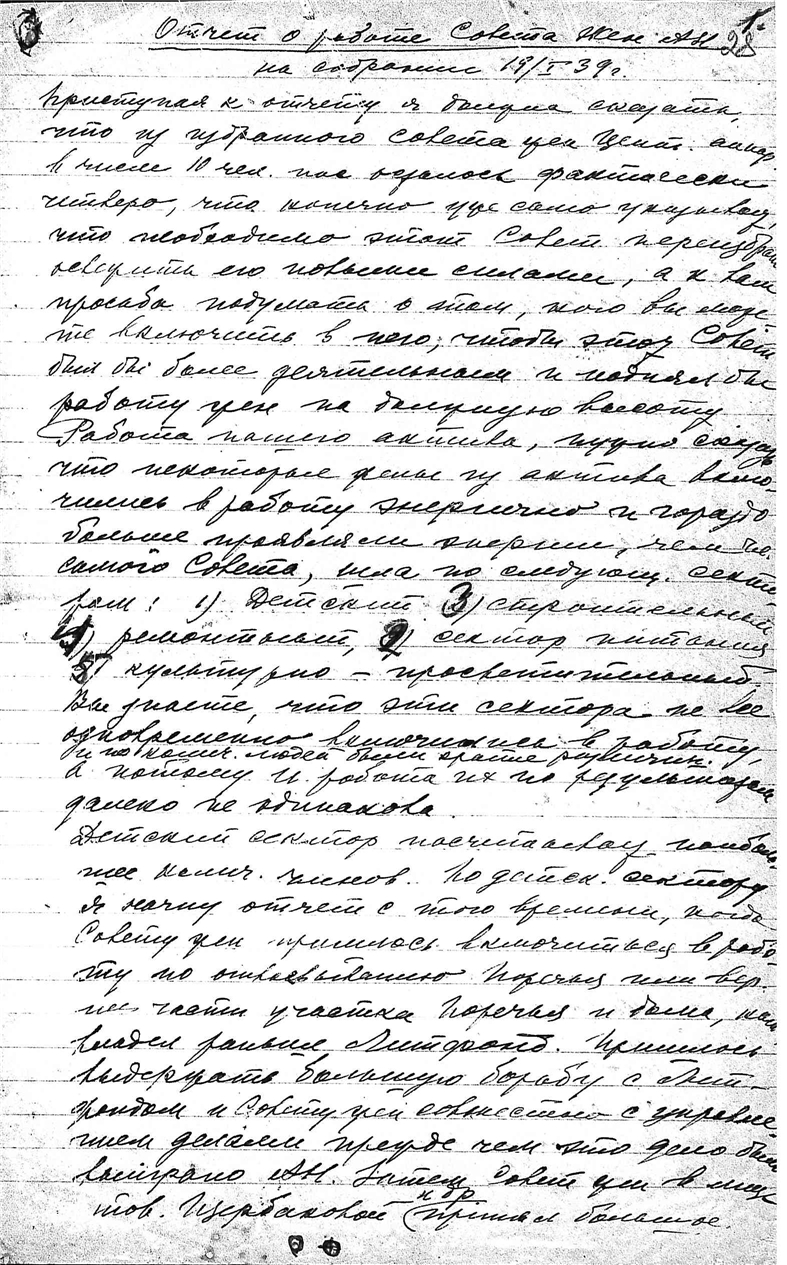 1.
28
Отчет о работе Совета Жен АН
на собрании 19/I 39 г.
Приступая к отчету я должна сказать,
что из избранного совета жен Цент. аппар.
в числе 10 чел. нас осталось фактически
четверо, что конечно уже само указывает,
что необходимо этот Совет переизбрать
освежить его новыми силами, а к вам
просьба подумать о том, кого вы може
те включить в него, чтобы этот Совет
был бы более деятельным и поднял бы
работу жен на должную высоту
Работа нашего актива, нужно сказать
что некоторые жены из актива вклю-
чились в работу энергично и гораздо
больше проявляли энергии, чем чл.
самого Совета, шла по следующ. секто
рам: 1) Детский 3) строительный
4) ремонтный, 2) сектор питания
5) культурно – просветительный.
Вы знаете, что эти сектора не все
одновременно включились в работу,
и по колич. людей были крайне различн.
а потому и работа их по результатам
далеко не одинакова.
Детский сектор насчитывал наиболь-
шее колич. членов. По детск. сектору
я начну отчет с того времени, когда
Совету жен пришлось включиться в рабо-
ту по отвоевыванию Поречья или вер-
нее части участка Поречья и дома, кот.
владел раньше Литфонд. Пришлось
выдержать большую борьбу с Лит-
фондом и Совету жен совместно с управле-
нием делами прежде чем это дело было
выиграно АН. Затем Совет жен в лице
тов. Щербаковой и др. принял большое